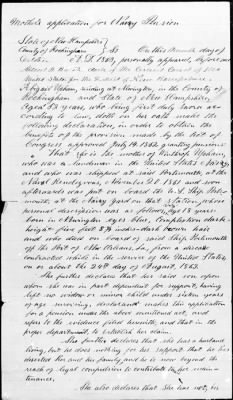 Mother's application for Navy Pension
State of New Hampshire
County of Rockingham SS On this seventh day of
October A.D. 1864, personally appeared, before me
Clerk of the Circuit Court of the
United States for the District of New Hampshire,
Abigail Upham, residing at Newington, in the County of
Rockingham and State of New Hampshire,
aged 59 years, who being first duly sworn ac-
cording to law, doth on her oath make the
following declaration, in order to obtain the
benefits of the provision made by the Act of
Congress approved July 14, 1862, granting pensions
That she is the mother of Winthrop Upham,
who was a landsman in the United States Navy,
and who was shipped at said Portsmouth, at the
Naval Rendezvous, November 21, 1861 and soon
afterwards was put on board the U.S. Ship Ports-
mouth, at the Navy Yard on that station, whose
personal description was as follows, age 18 years
born in Newington eyes blue, complexion dark
height five feet 5 1/2 inches dark brown hair
and who died on board of said Ship Portsmouth
off the Port of New Orleans, La., from a disease
contracted while in the service of the United States,
on or about the 24th day of August, 1863.
She further declares that her said son, upon
whom she was in part dependent for support, having
left no widow or minor child under sixteen years
of age surviving, declarant makes this application
for a pension under the above mentioned act, and
refers to the evidence filed herewith, and that in the
proper department, to establish her claim.
She further declares that she has a husband
living, but he does nothing for her support that he has
deserted her and his family and he is now beyond the
reach of legal compulsion to contribute to her main-
tenance,
She also declares that she has not, in